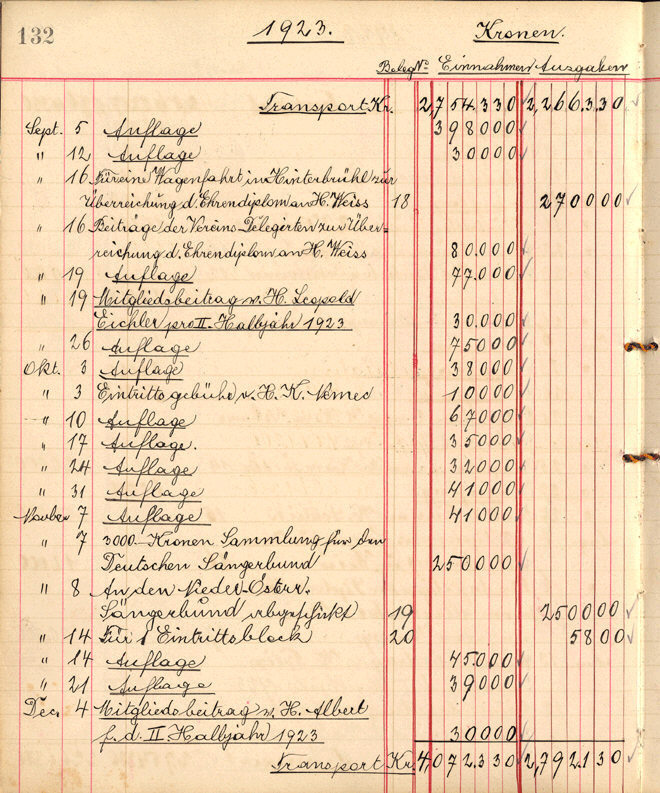 132 1923. Kronen.
Beleg Nr. Einnahmen Ausgaben
Transport Kr. 2,754.330 2,266.330
Sept. 5 Auflage 398000
" 12 Auflage 30000
" 16 Für eine Wagenfahrt in Hinterbrühl zur
Überreichung d. Ehrendiplom an H. Weiss 18 270000
" 16 Beiträge der Vereins-Delegirten zur Über-
reichung d. Ehrendiplom an H. Weiss 80.000
" 19 Auflage 77.000
" 19 Mitgliedsbeitrag v. H. Leopold
Eichler pro II. Halbjahr 1923 30.000
" 26 Auflage 75000
Okt. 3 Auflage 38000
" 3 Eintrittsgebühr v. H. K. Nemec 10000
" 10 Auflage 67000
" 17 Auflage. 35000
" 24 Auflage 32000
" 31 Auflage 41000
7 Auflage 41000
" 7 3000 Kronen Sammlung für den
Deutschen Sängerbund 250000
" 8 An den Nieder-Österr.
Sängerbund abgeschickt 19 250000
" 14 Für 1 Eintrittsblock 20 5800
" 14 Auflage 45.000
" 21 Auflage 39000
Dec. 4 Mitgliedsbeitrag v. H. Albert
f. d. II Halbjahr 1923 30000
Transport Kr. 4,072.330 2,792.130